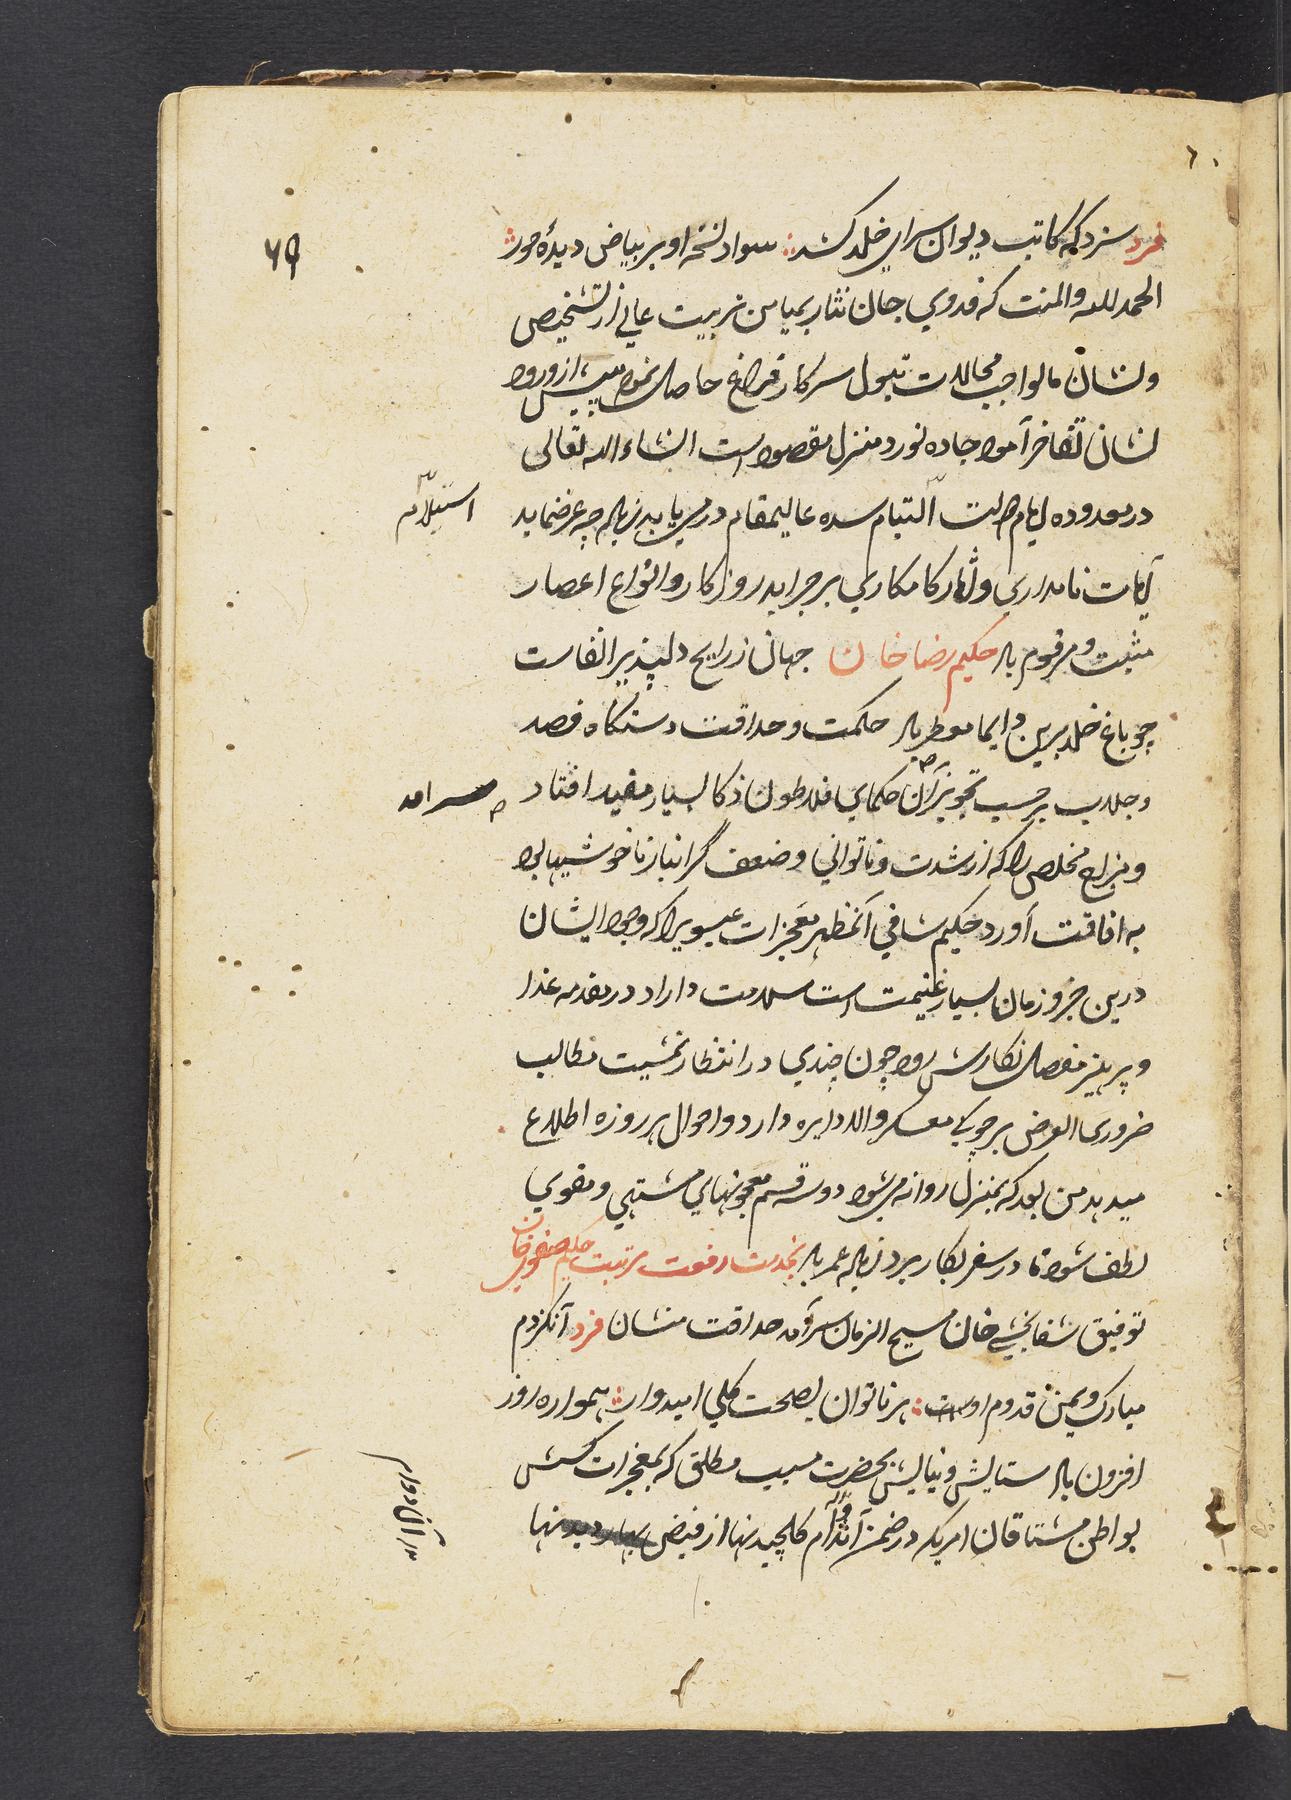 ۶۹
فرد سزد که کاتب دیوان سرای خلد کشد سواد نسخه او بر بیاض دیدهٔ حور
الحمد لله والمنت که فدوي جان نثار بمیامن تربیت عالي از تشخیص
ونشان مالواجب محالات تیول سرکار فراغ حاصل نموده پس از ورود
نشان تفاخر آمود جاده نورد منزل مقصود است انشاء الله تعالی
در معدوده ایام التیام سده عالیمقام در می یابد زیاده چه عرضنماید
استیلام
آیات نامداري و آثار کامکاري بر جراید روزکار و انواع اعصار
مثبت و مرقوم باد حکیم رضا خان جهان ز رایح دلپذیر انفاست
چو باغ خلد برین دایما معطر باد حکمت و حداقت دستکاه فصد
و جلاب بر حسب تجویز آن حکماي فلاطون ذکا بسیار مفید افتاد
سرامد
و مزاج مخلص را که از شدت و ناتواني و ضعف گرانبار ناخوشیها بود
به افاقت آورد حکیم شافي آنمظهر معجزات عیسویرا که وجود ایشان
درین جزو زمان بسیار غنیمت است سلامت داراد در مقدمه غذا
و پرهیز مفصل نکارش رود چون چندي در انتظار تمشیت مطالب
ضروری العرض بر چوکي معسکر والا دایره دارد و احوال هر روزه اطلاع
میدهد من بعد که بمنزل روانه میشود دو سه قسم معجونهاي مشتهي و مقوي
لطف شود تا در سفر بکار برد زیاده عمر باد بخدمت رفعت مرتبت حکیم صفوي خان
توفیق شفا بخشي خان مسیح الزمان سرآمد حداقت منشان فرد آنکز دم
مبارک و یمن قدوم اوست هر ناتوان بصحت کلي امیدوار همواره روز
افزون باد ستایش و نیایش بحضرت مسبب مطلق که بمعجزات کشش
بواطن مشتاقان امریکه در ضمن آن کلچیدنها از فیض بهار دیدنها